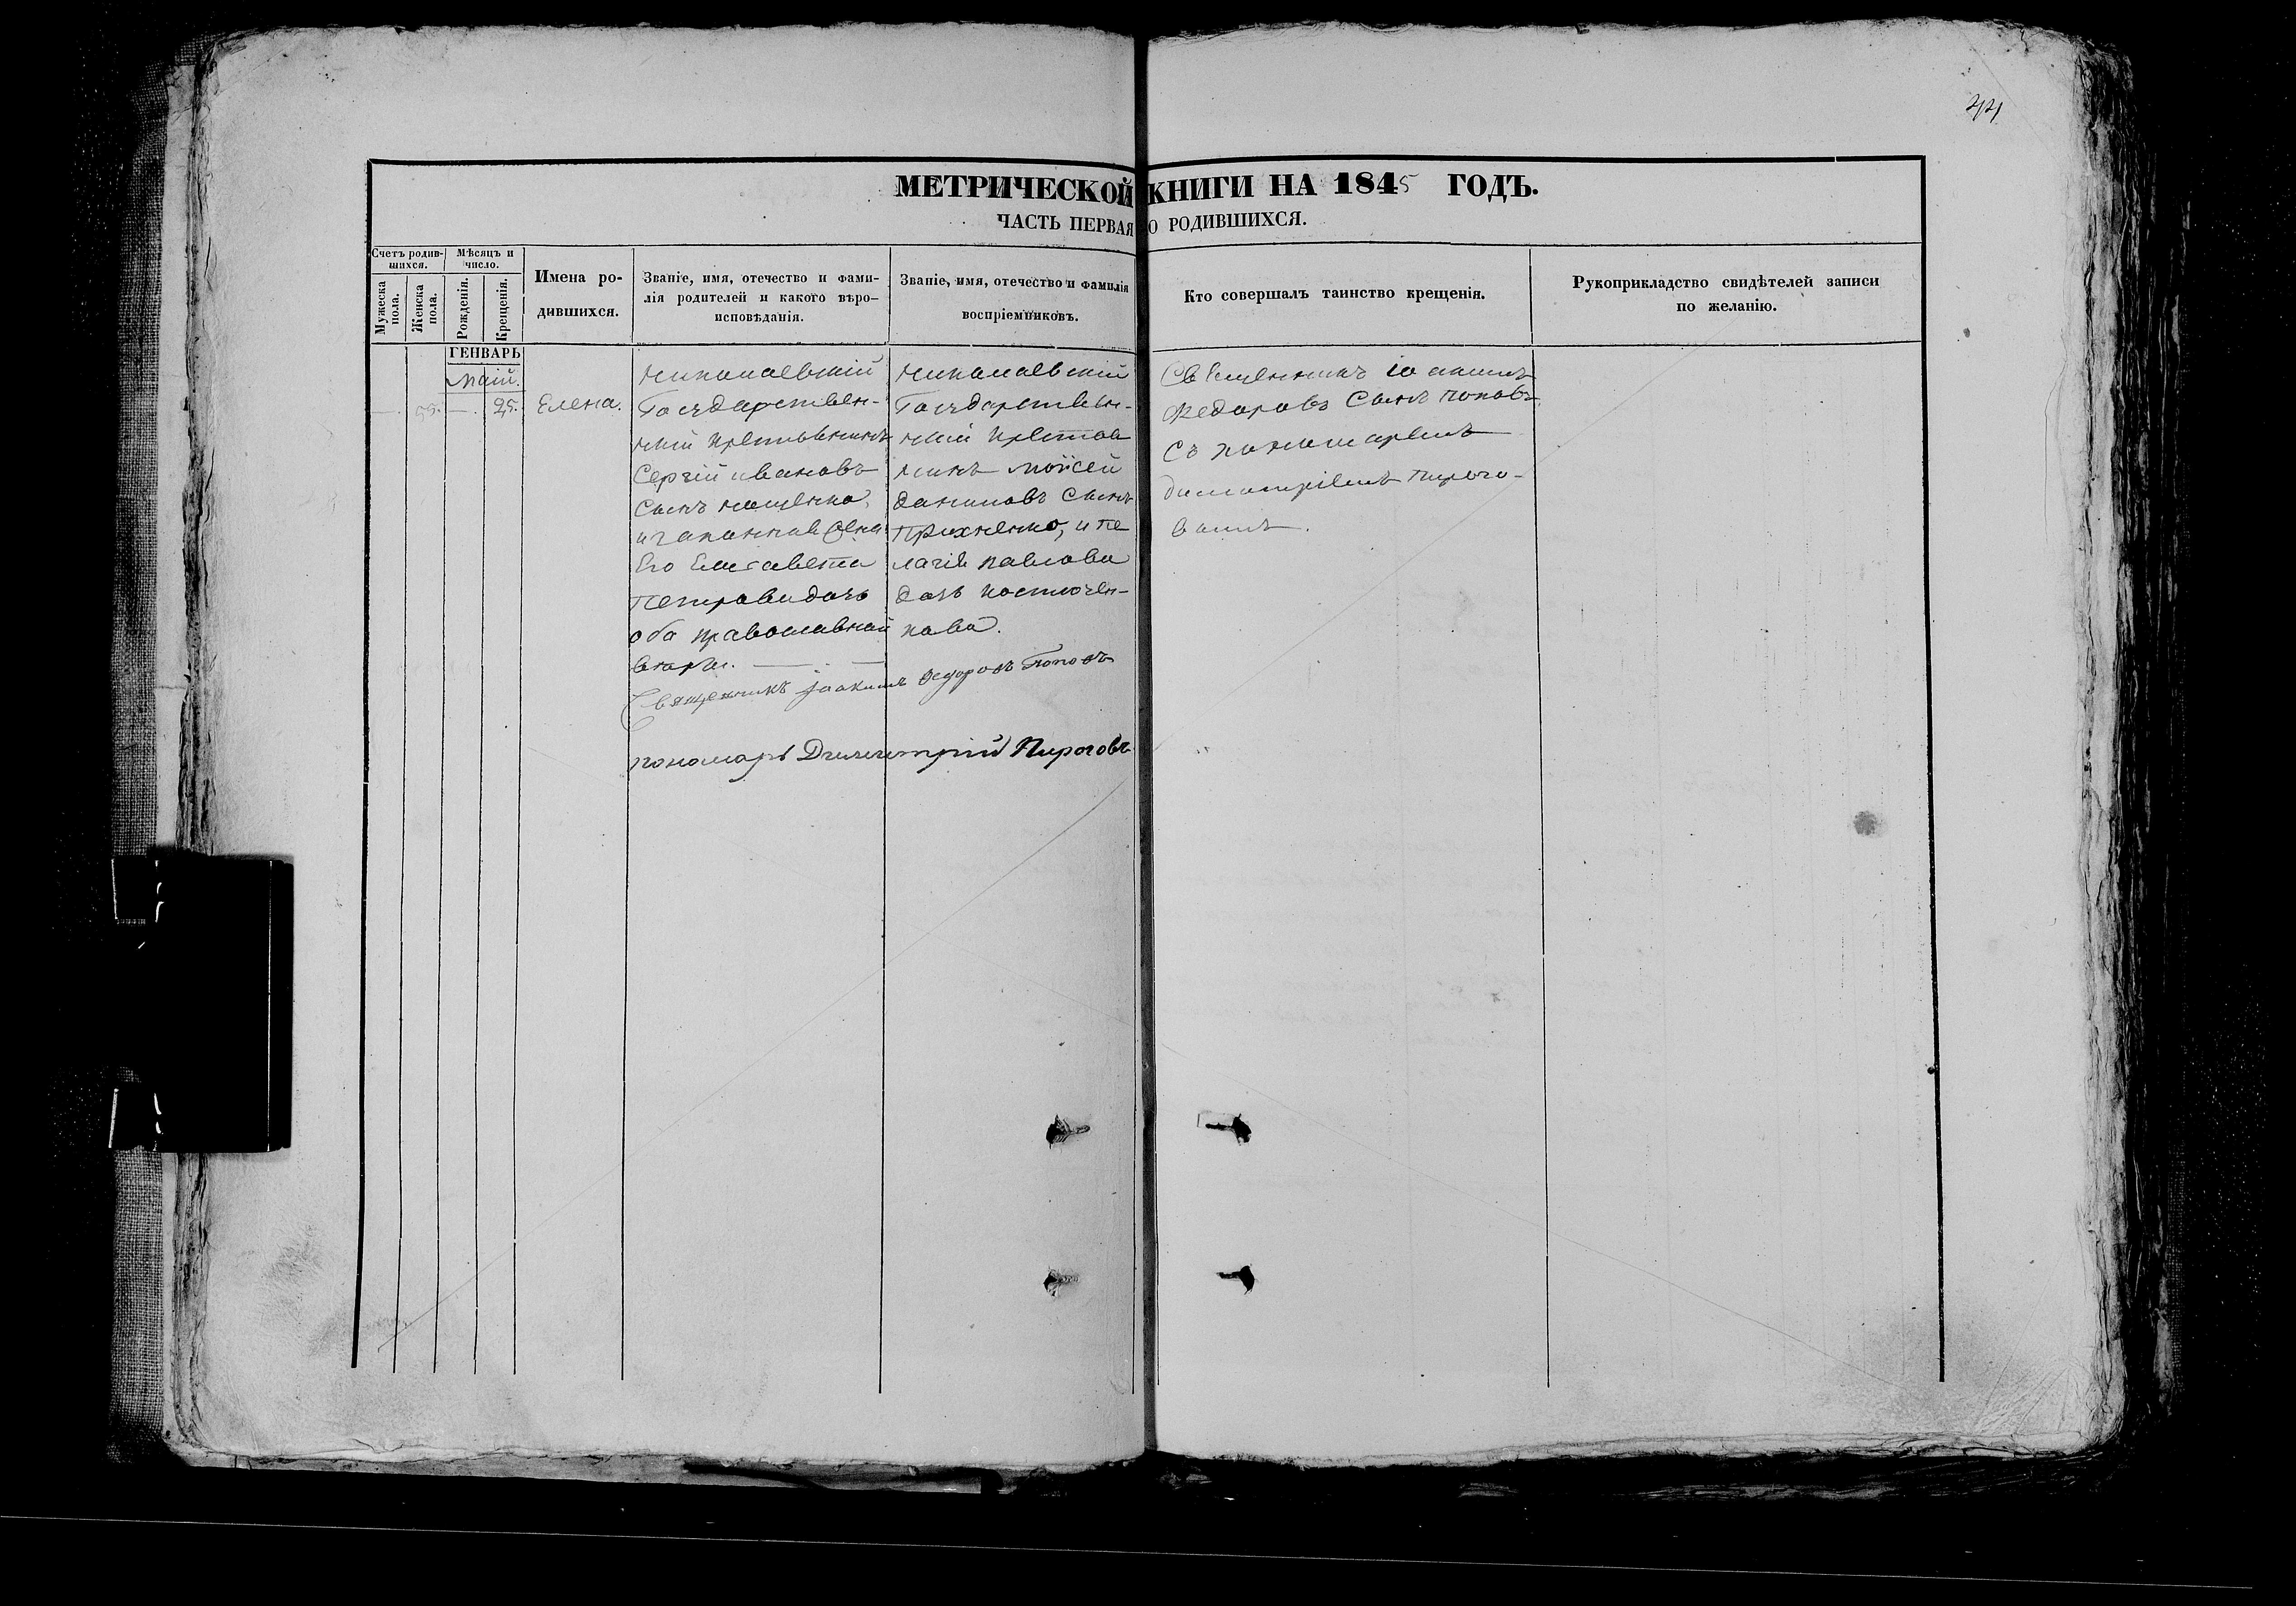 44
МЕТРИЧЕСКОЙ КНИГИ НА 1845 ГОДЪ.
ЧАСТЬ ПЕРВАЯ О РОДИВШИХСЯ.
Счетъ родив-
шихся.
Мужеска
пола.
Женска
пола.
Мѣсяцъ и
число.
Рожденія.
Крещенія.
Имена ро-
дившихся.
Званіе, имя, отечество и фами-
лія родителей и какого вѣро-
исповѣданія.
Званіе, имя, отечество и фамилія
воспріемниковъ.
Кто совершалъ таинство крещенія.
Рукоприкладство свидѣтелей записи
по желанію.
ГЕНВАРЬ
Маій.
— . 55. — . 25.
Елена.
Николаевскій
Государствен-
ный
Сергій Ивановъ
Сынъ
и законная Жена
Его Елисавета
Петрова дочь
оба православной
вѣры.
Николаевскій
Государствен-
ный
Моисей
Даниловъ Сынъ
и Пе
лагія Павлова
дочь
Священникъ Іоакимъ
Федоровъ Сынъ Поповъ
Съ пономаремъ
Димитріемъ Пирого-
вымъ.
Священникъ Іоакимъ Федоровъ Поповъ
пономарь Димитрій Пироговъ